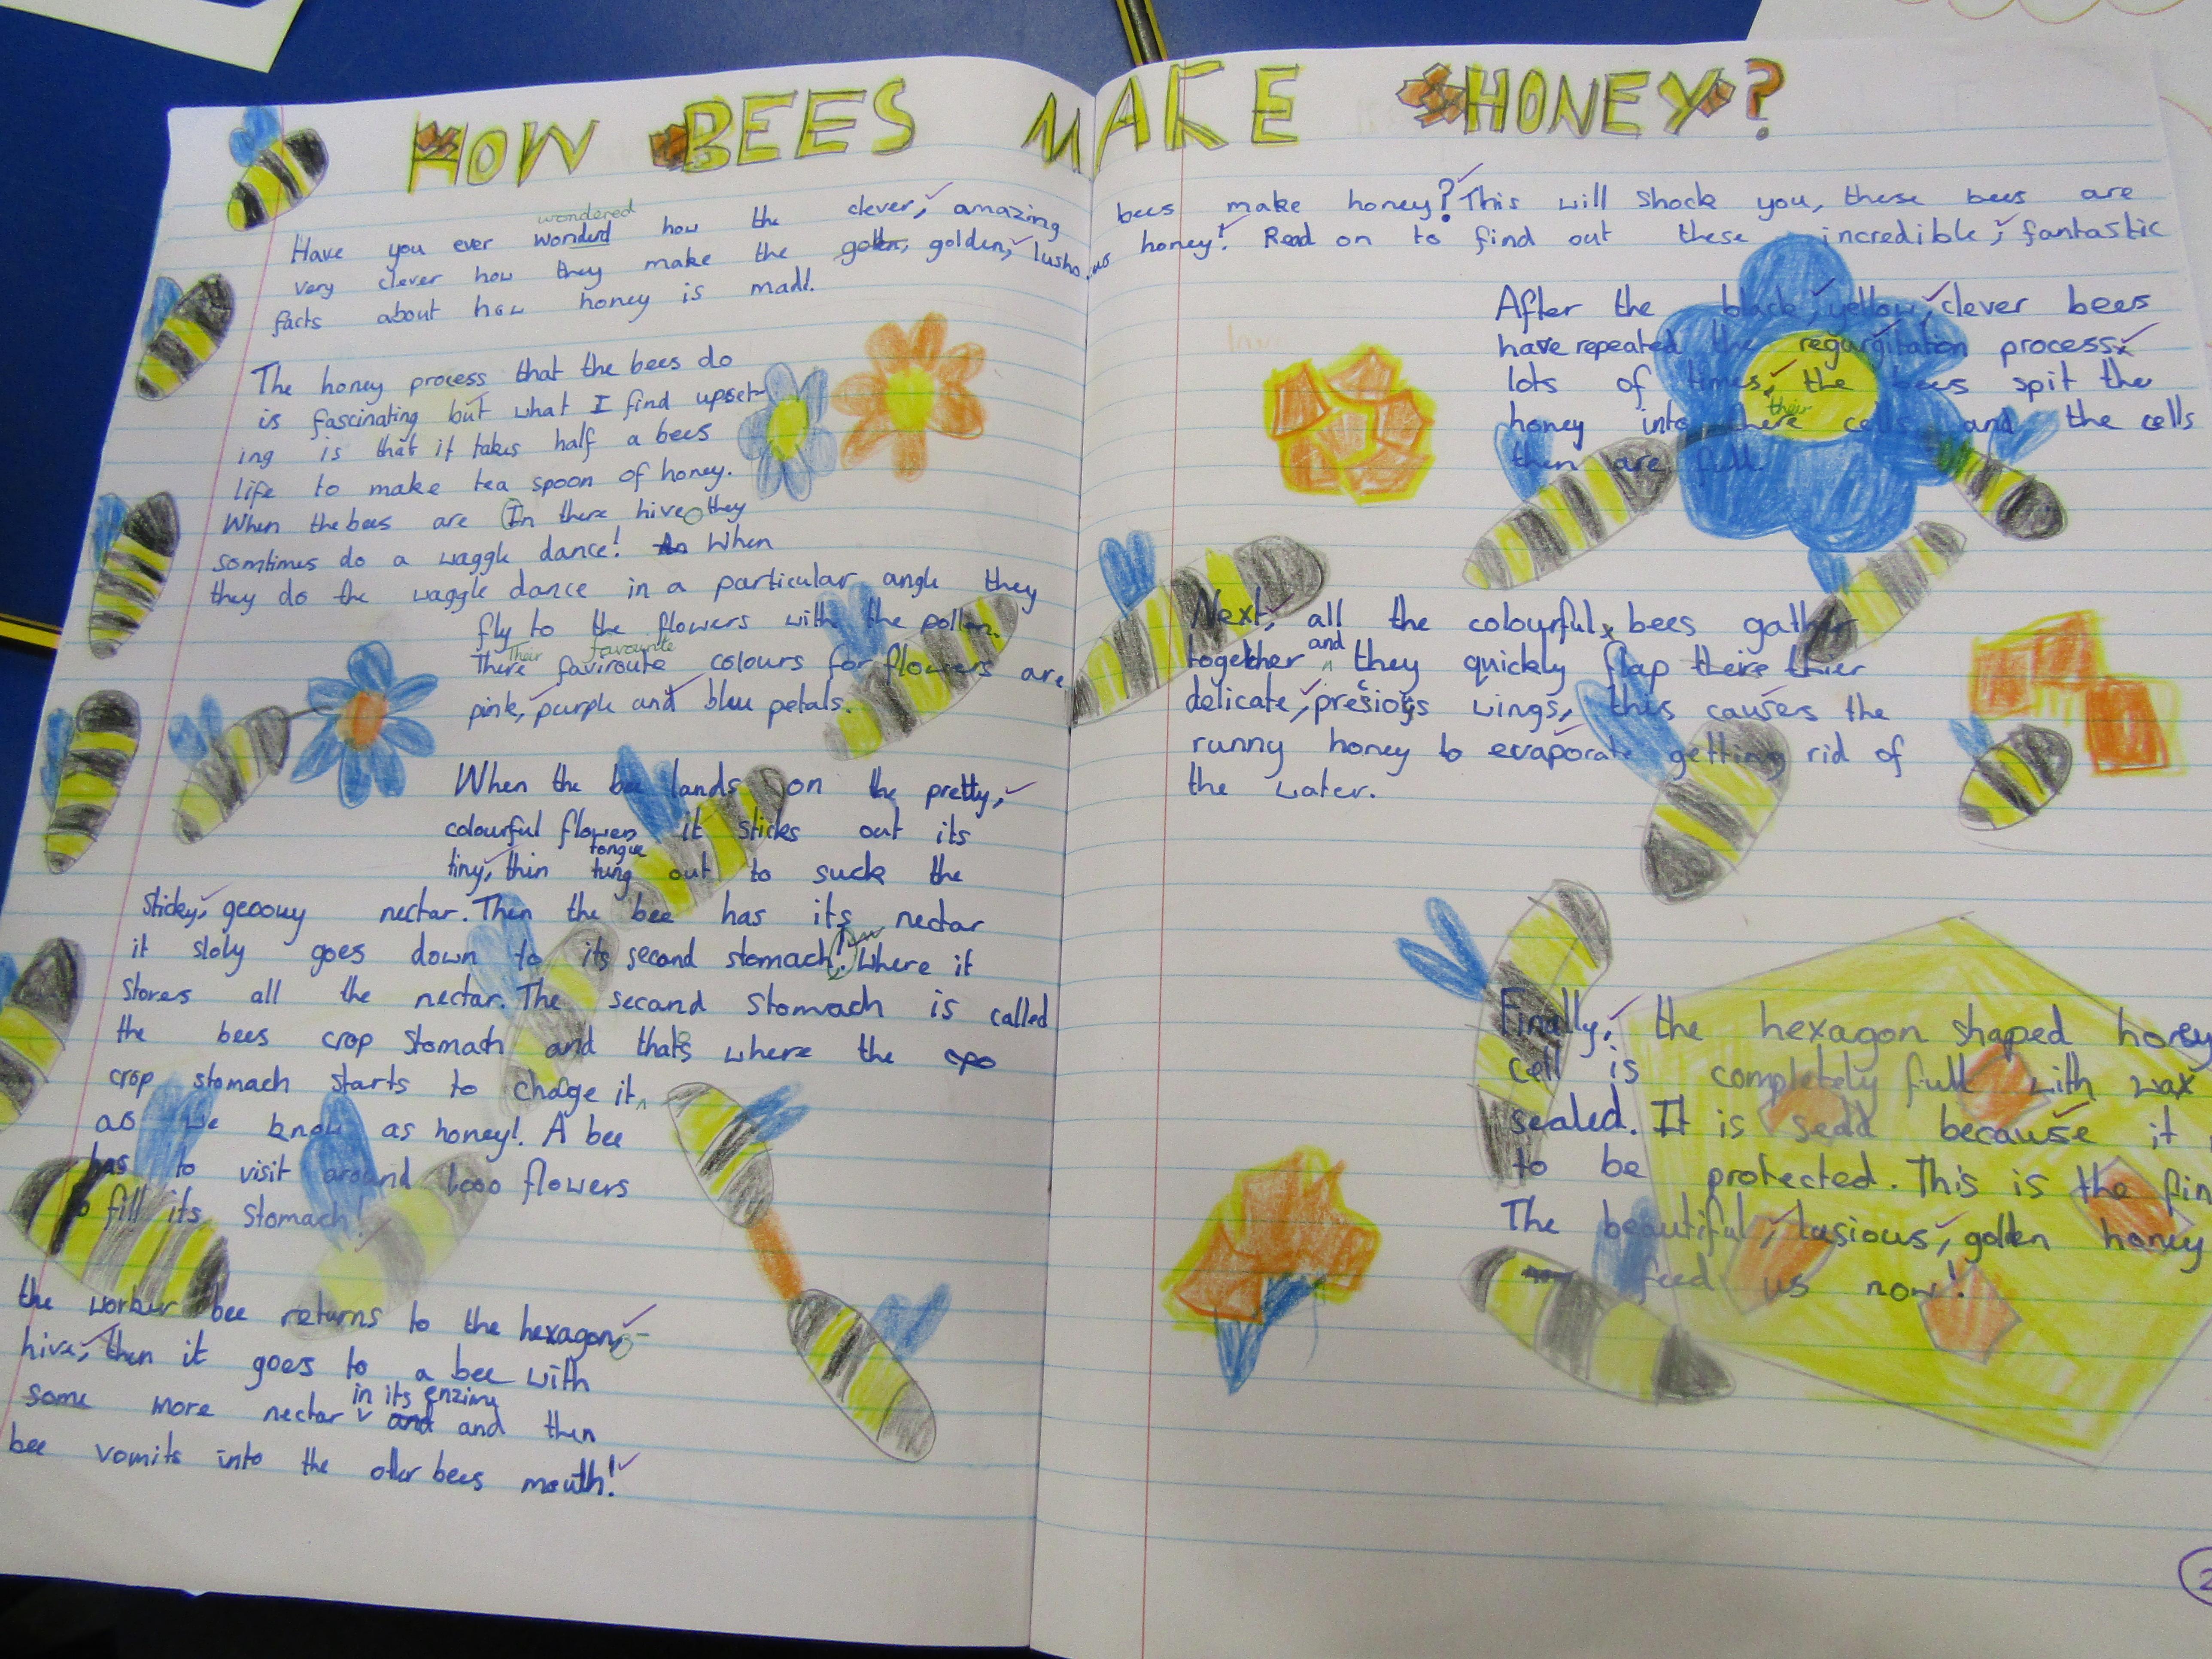 HOW BEES MAKE HONEY?
wondered
Have you ever wonderd how the clever, amazing bees make honey? This will shock you, these bees are
very clever how they make the golden, lusho us honey! Read on to find out these incredible, fantastic
facts about how honey is made!.
The honey process that the bees do
is fascinating but what I find upset-
ing is that it takes half a bees
life to make tea spoon of honey.
When the bees are In there hive they
somtimes do a waggle dance! When
they do the waggle dance in a particular angle they
fly to the flowers with the pollen.
Their favourite
There faviroute colours for flowers are
pink, purple and blue petals.
When the bee lands on the pretty,
colourful flower it sticks out its
tongue
tiny, thin tung out to suck the
sticky, geoouy nectar. Then the bee has its nectar
it sloly goes down to its second stomach! Where it
stores all the nectar. The second stomach is called
the bees crop stomach and that's where the
crop stomach starts to change it
as we know as honey!. A bee
has to visit around 1,000 flowers
to fill its stomach!
the worker bee returns to the hexagon,
hive, then it goes to a bee with
in its enzimy
some more nectar and then
bee vomits into the other bees mouth!
After the black, yellow, clever bees
have repeated the regurgitation process
lots of times, the bees spit the
their
honey into there cells and the cells
then are full
Next, all the colourful bees gather
and
together they quickly flap their thier
delicate, precioys wings, this causes the
runny honey to evaporate getting rid of
the water.
Finally, the hexagon shaped honey
cell is completely full with wax
sealed. It is seald because it
to be protected. This is the fin
The beautiful, lusious, golden honey
feed us now!
2